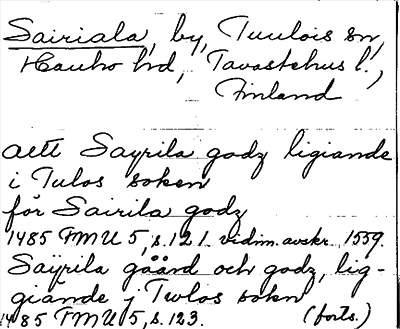 Sairiala, by, Tuulois sn,
Hauho hd, Tavastehus l.,
Finland
att Sayrila godz ligiande
i Tulos soken
för Sairila godz
1485 FMU 5, s. 121 vidim. avskr. 1559.
Sayrila gåård och godz, lig-
giande j Twlos sokn
1485 FMU 5, s. 123. (forts.)